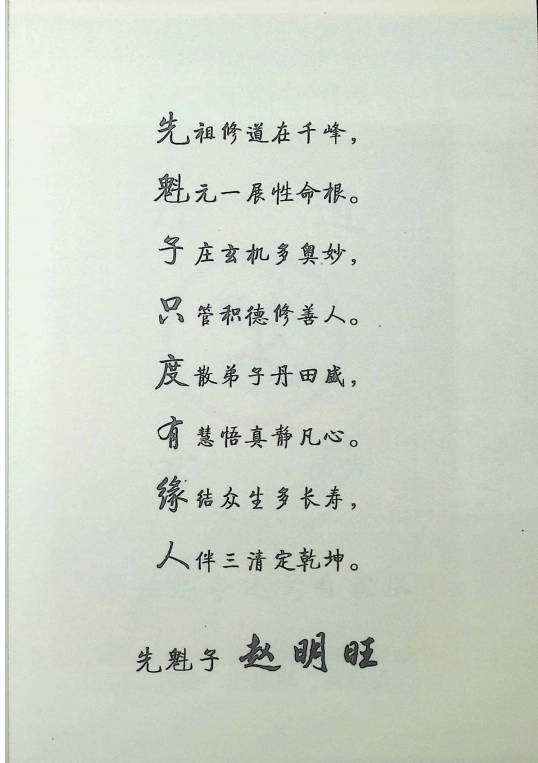 先祖修道在千峰，
魁元一展性命根。
子庄玄机多奥妙，
只管积德修善人。
度散弟子丹田盛，
有慧悟真静凡心。
缘结众生多长寿，
人伴三清定乾坤。
先魁子 赵明旺